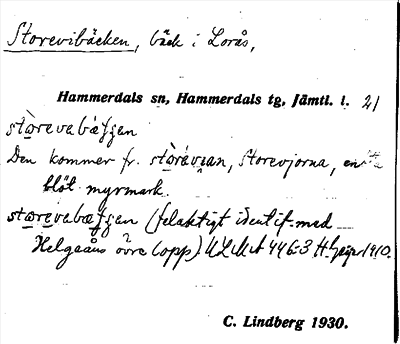 Storevibäcken, bäck i Lorås,
Hammerdals sn, Hammerdals tg, Jämtl. l. 21
stòrevabæ̀ʃʃen
Den kommer fr. Storevjorna, en
blöt myrmark.
stòrevabæ̀ʃʃen (felaktigt identif. med
Helgeåns övre lopp) ULMA 446:3 H. Geijer 1910.
C. Lindberg 1930.